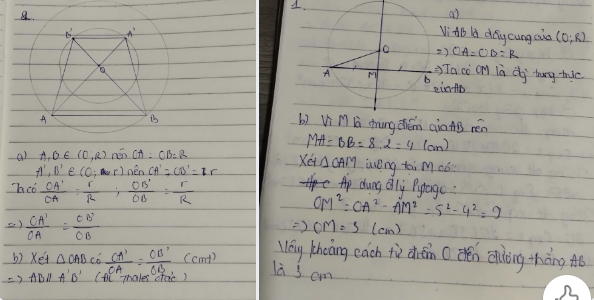 2.
B' A'
O
A B
a) A, B ∈ (O,R) nên OA = OB = R
A', B' ∈ (O; r) nên OA' = OB' = r
Ta có OA'/OA = r/R ; OB'/OB = r/R
=> OA'/OA = OB'/OB
b) Xét △OAB có OA'/OA = OB'/OB (cmt)
=> AB // A'B' (đl Thales đảo)
1.
O
A M B
a)
Vì AB là dây cung của (O;R)
=> OA = OB = R
=> Ta có OM là đg trung trực
của AB
b) Vì M là trung điểm của AB nên
MA = BB = 8:2 = 4 (cm)
Xét △OAM vuông tại M có:
Áp dụng đ/lý Pytago:
OM² = OA² - AM² = 5² - 4² = 9
=> OM = 3 (cm)
Vậy khoảng cách từ điểm O đến đường thẳng AB
là 3 cm